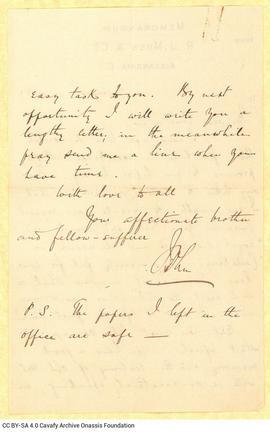 MEMORANDUM
R. J. Moss & Co
ALEXANDRIA
easy task to you. By next
opportunity I will write you a
lengthy letter, in the meanwhile
pray send me a line when you
have time.
With love to all
Your affectionate brother
and fellow-sufferer
John
P.S. The papers I left in the
office are safe —
CC BY-SA 4.0 Cavafy Archive Onassis Foundation